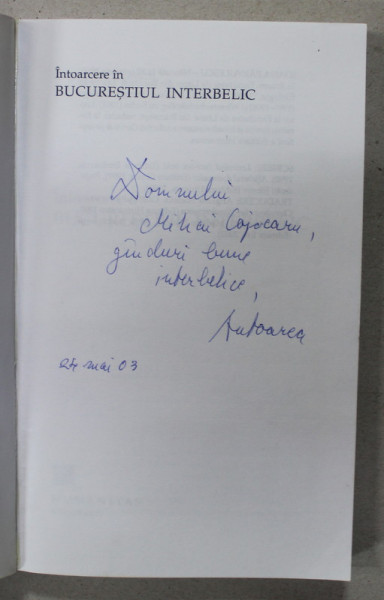 Întoarcere în
BUCUREȘTIUL INTERBELIC
Domnului
Mihai Cojocaru,
gînduri bune
interbelice,
Autoarea
24 mai 03